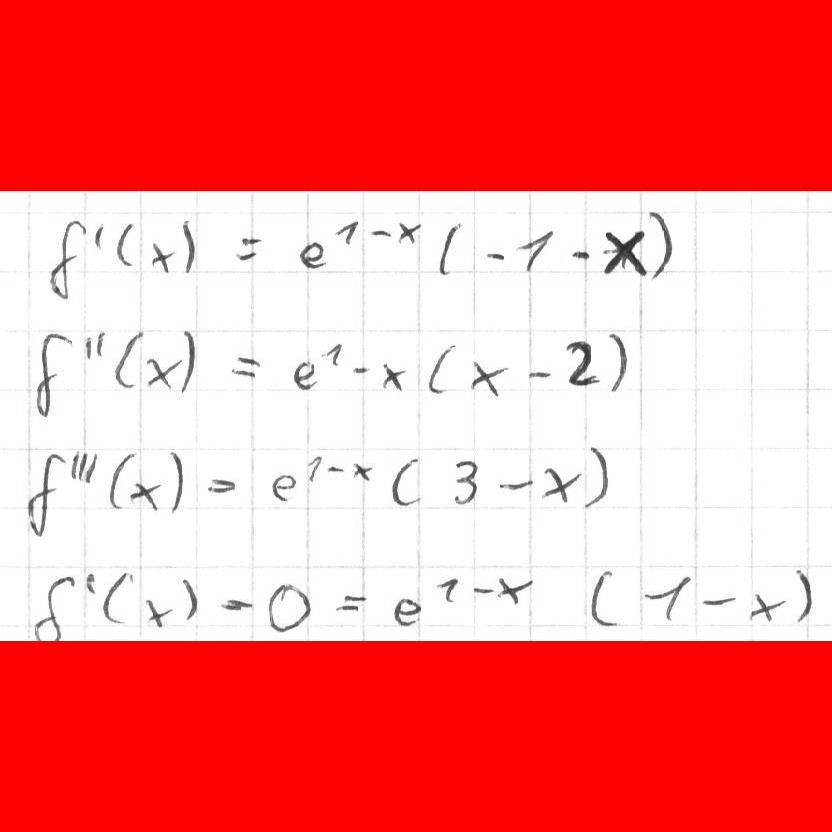 f'(x) = e^{1-x} (-1-x)
f''(x) = e^{1-x} (x-2)
f'''(x) = e^{1-x} (3-x)
f'(x) = 0 = e^{1-x} (1-x)